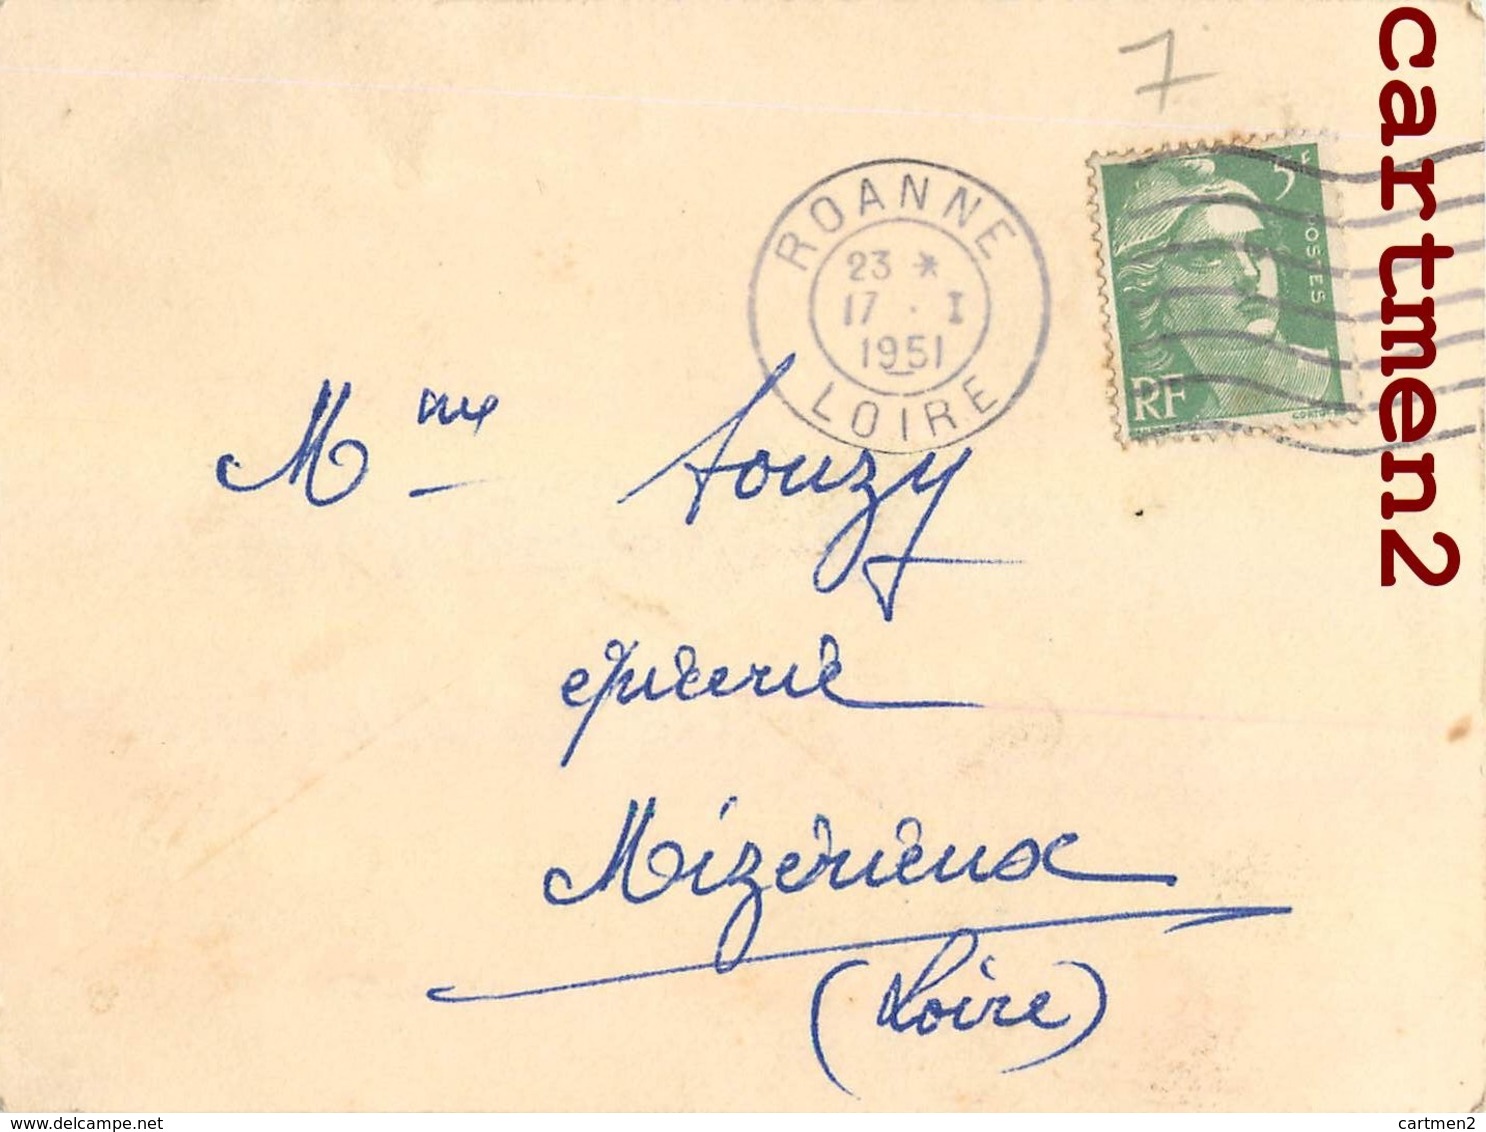 7
cartmen2
ROANNE
23 *
17 . I
1951
LOIRE
5F
POSTES
RF
Mme Souzy
épicerie
Mizérieux
(Loire)
www.delcampe.net
cartmen2